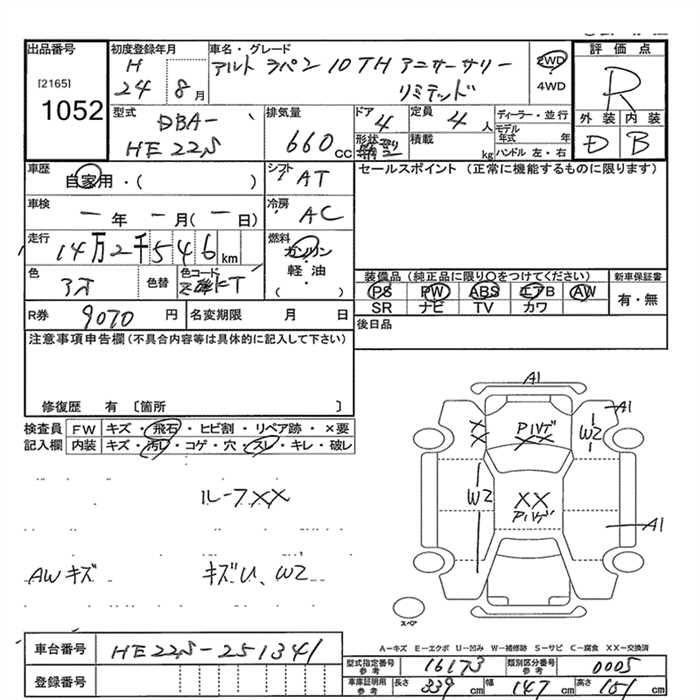 出品番号
[2165]
1052
初度登録年月
H
24 8月
車名・グレード
アルト ラパン 10TH アニバーサリー
リミテッド
2WD
4WD
評価点
R
外装 内装
D B
型式
DBA-
HE22S
排気量
660cc
ドア
4
定員
4人
形状
積載
kg
ディーラー・並行
モデル年式 年
ハンドル 左・右
車歴
自家用・( )
シフト
AT
セールスポイント (正常に機能するものに限ります)
車検
ー年ー月(ー日)
冷房
AC
走行
14万2千546km
燃料
ガソリン
軽油
・
( )
色
色替
色コード
装備品(純正品に限り○をつけてください)
PS PW ABS エアB AW
SR ナビ TV カワ
新車保証書
有・無
R券 9070円
名変期限 月 日
後日品
注意事項申告欄(不具合内容等は具体的に記入して下さい)
修復歴 有〔箇所 〕
検査員記入欄
FW キズ・飛石・ヒビ割・リペア跡・×要
内装 キズ・汚レ・コゲ・穴・スレ・キレ・破レ
ルーフXX
AWキズ
キズU、W2
A1
A1
X
X
P1VT
XX
W2
W2
XX
A1
スペア
A−キズ E−エクボ U−凹み W−補修跡 S−サビ C−腐食 XX−交換済
車台番号 HE22S-251341
登録番号
型式指定番号 参考 16173
類別区分番号 参考 0005
車庫証明用 参考 長さ 339cm 幅 147cm 高さ 151cm